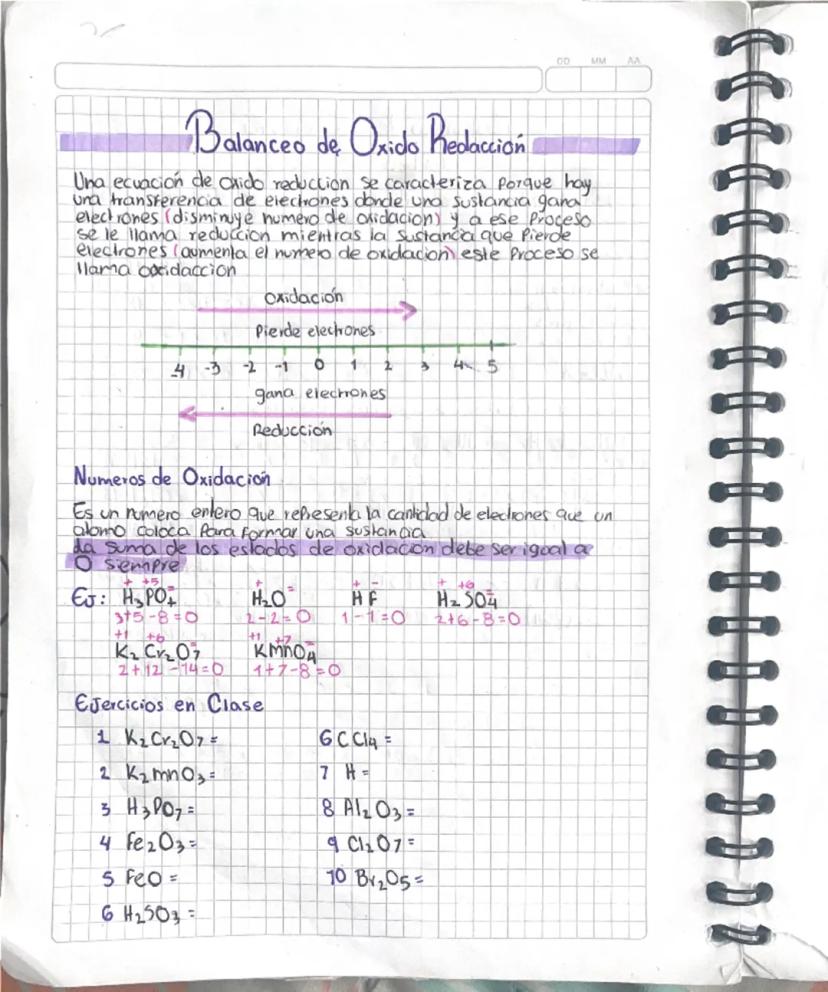 DD MM AA
Balanceo de Oxido Redacción
Una ecuación de oxido reduccion se caracteriza Porque hay
una transferencia de electrones donde una sustancia gana
electrones (disminuye numero de oxidacion) y a ese Proceso
se le llama reduccion mientras la sustancia que Pierde
electrones (aumenta el numero de oxidacion) este Proceso se
llama oxidaccion
Oxidación
Pierde electrones
-4 -3 -2 -1 0 1 2 3 4 5
gana electrones
Reducción
Numeros de Oxidación
Es un numero entero que representa la cantidad de electrones que un
atomo coloca Para formar una sustancia
La suma de los estados de oxidación debe ser igual a
0 siempre
+ +5 = + = + - + +6 =
EJ: H₃PO₄ H₂O HF H₂SO₄
3+5-8=0 2-2=0 1-1=0 2+6-8=0
+1 +6 = +1 +7 =
K₂Cr₂O₇ KMnO₄
2+12-14=0 1+7-8=0
Ejercicios en Clase
1 K₂Cr₂O₇ = 6 CCl₄ =
2 K₂mnO₃ = 7 H =
3 H₃PO₇ = 8 Al₂O₃ =
4 Fe₂O₃ = 9 Cl₂O7 =
5 FeO = 10 Br₂O₅ =
6 H₂SO₃ =